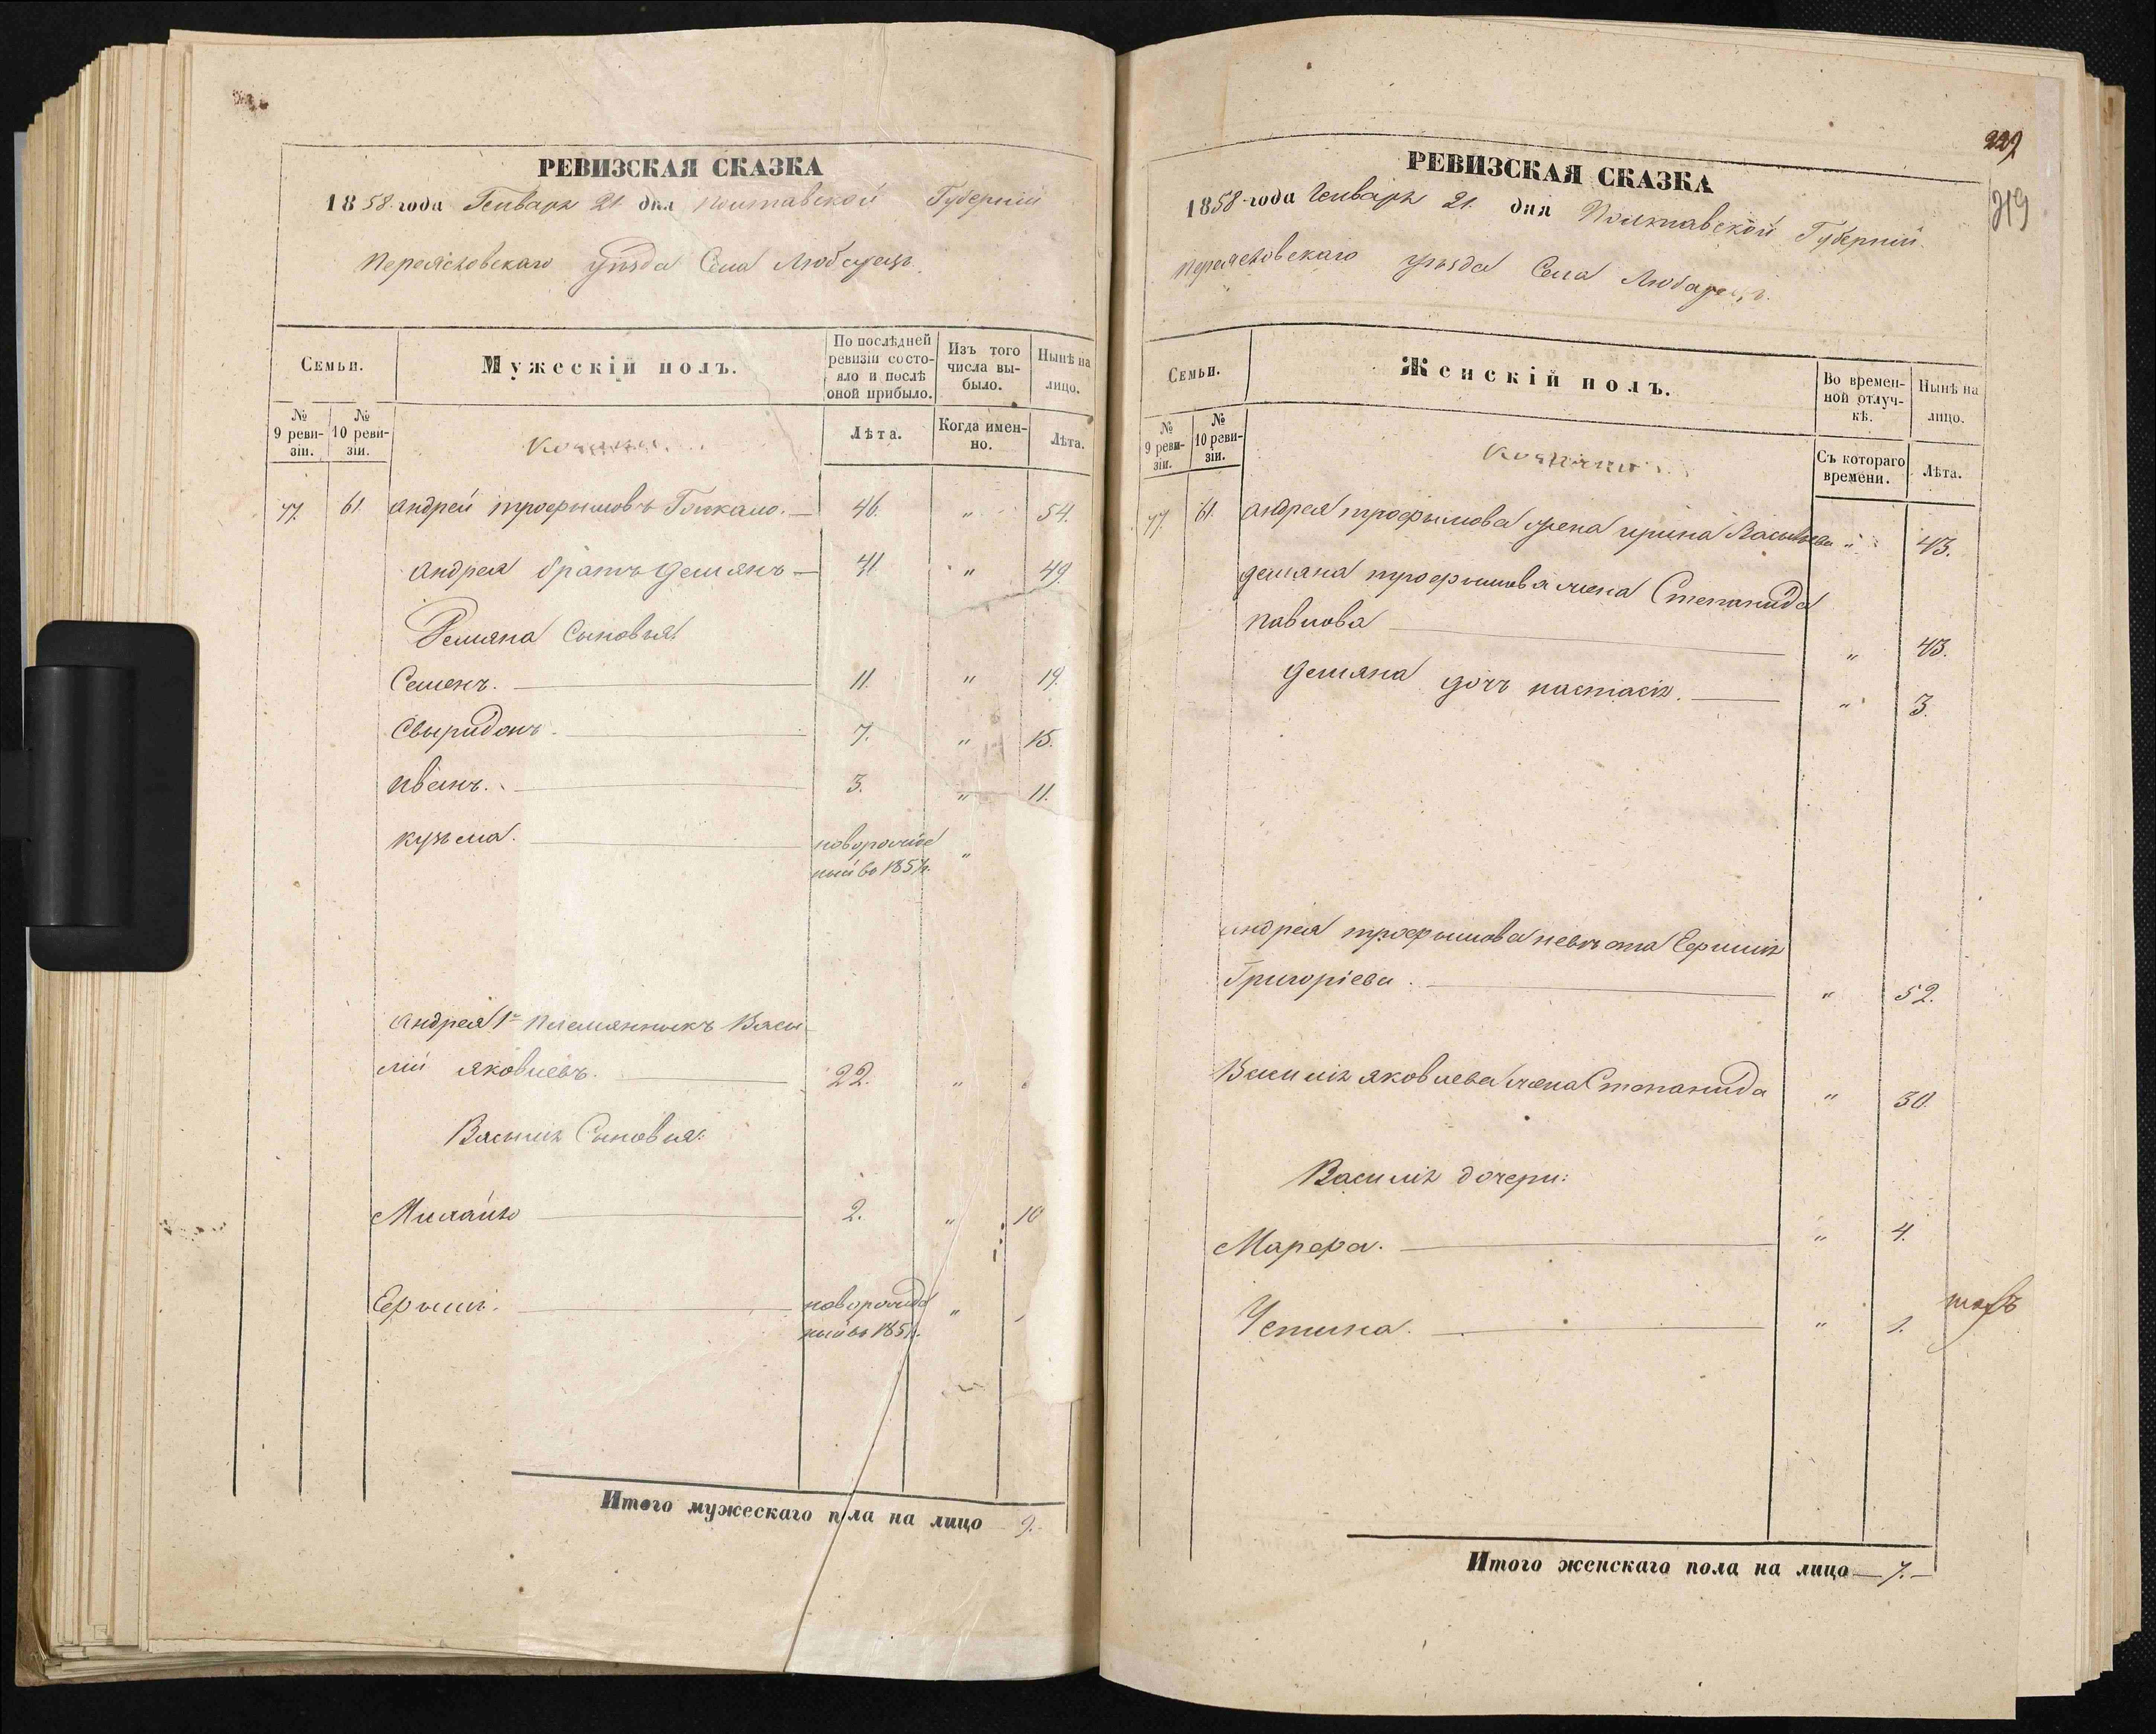 РЕВИЗСКАЯ СКАЗКА
1858 года Генваря 21 дня Полтавской Губернии
Переяславскаго уѣзда Села Любарецъ
Семьи.
Мужескій полъ.
По послѣдней ревизіи состояло и послѣ оной прибыло.
Изъ того числа выбыло.
Нынѣ на лицо.
№ 9 ревизіи.
№ 10 ревизіи.
Лѣта.
Когда именно.
Лѣта.
77. 61. Андрей трофымовъ — 46. " 54.
Андрея братъ демянъ — 41 " 49.
Демяна Сыновья:
Семенъ. 11. " 19.
Свыридонъ. 7. " 15.
иванъ. 3. " 11.
кузьма. новорожде "
ный во 1851г.
Андрея 1го племянныкъ Васи
лій яковлевъ. 22. "
Василія Сыновья:
Михайло 2. " 10
Ефимъ. новорожде "
ный въ 185
Итого мужескаго пола на лицо 9.
229
219
РЕВИЗСКАЯ СКАЗКА
1858 года Генваря 21. дня Полтавской Губерніи.
переяславскаго уѣзда Села Любарецъ.
Семьи.
Женскій полъ.
Во временной отлучкѣ.
Нынѣ на лицо.
№ 9 ревизіи.
№ 10 ревизіи.
Съ котораго времени.
Лѣта.
77. 61. андрея трофымова жена ирина Васильева " 43.
демяна трофымова жена Степанида
павлова " 43.
демяна дочь настасія. " 3.
андрея трофымова невѣстка Ефимія
Григоріева. " 52.
Василія яковлева жена Степанида " 30.
Василія дочери:
Марфа. " 4.
Устина. " 1.
Итого женскаго пола на лицо — 7. —